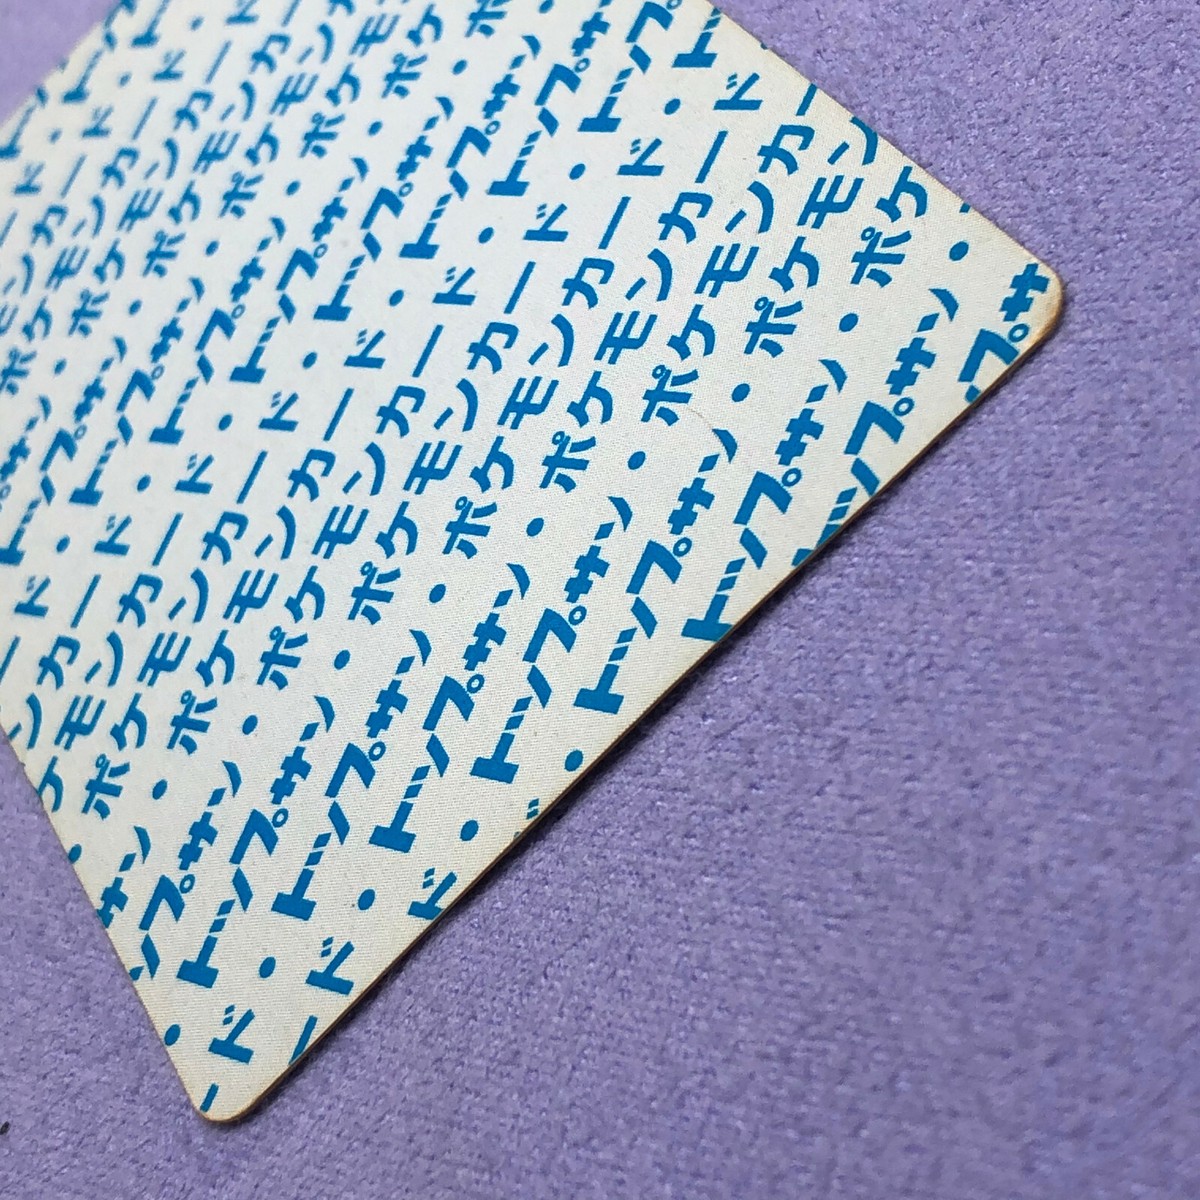 ード・
モンカード・ト
ポケモンカード・
サン・ポケモンカード
トップサン・ポケモンカー
ード・トップサン・ポケモンカ
ンカード・トップサン・ポケモン
ケモンカード・トップサン・ポケモ
・ポケモンカード・トップサン・ポケ
サン・ポケモンカード・トップサン・ポ
ップサン・ポケモンカード・トップサン
・トップサン・ポケモンカード・トップサ
ード・トップサン・ポケモンカード・トッ
ード・トップサン・ポケモンカード
ド・トップサン・ポケモンカー
・トップサン・ポケモン
トップサン・ポケ
ップサン・
プサ